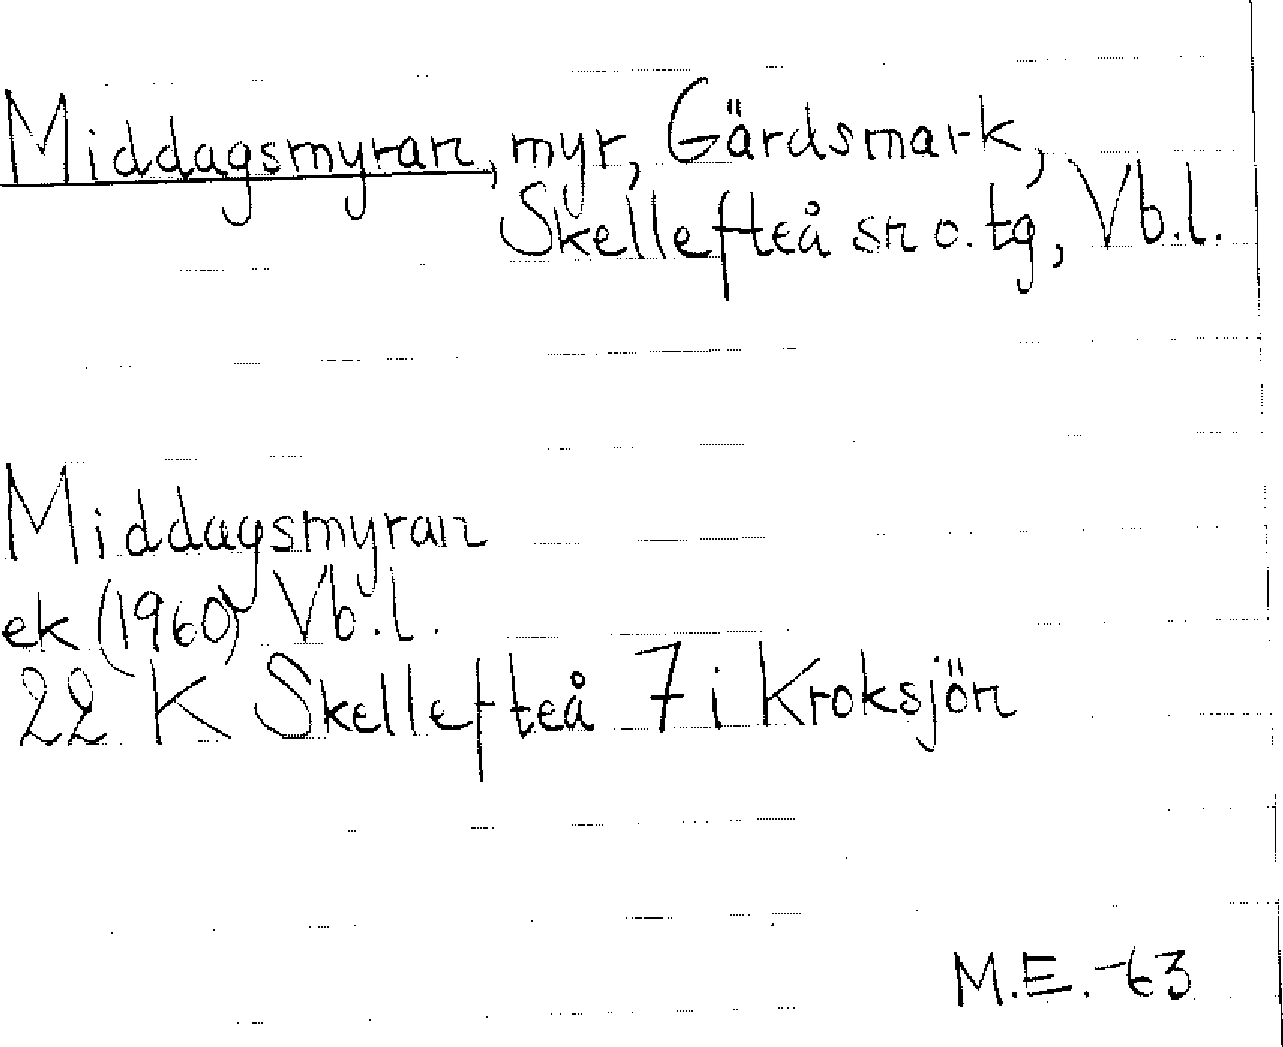 Middagsmyran, myr, Gärdsmark,
Skellefteå sn o. tg, Vb.l.
Middagsmyran
ek (1960) Vb.l.
22 K Skellefteå 7 i Kroksjön
M.E.-63